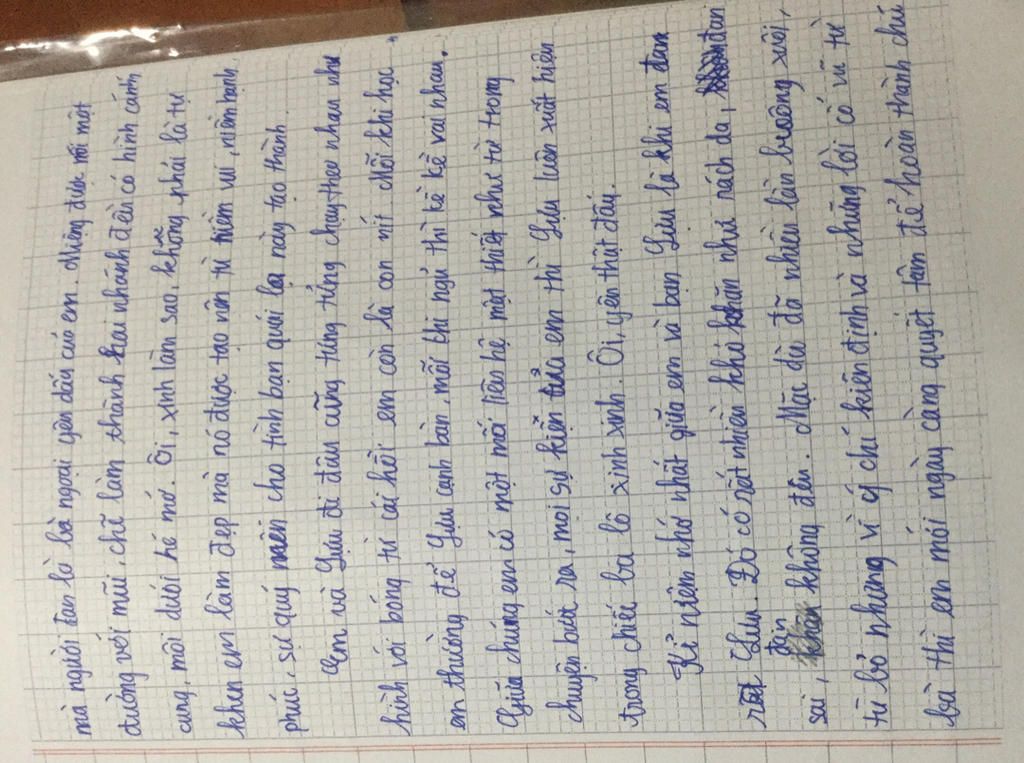 mà người đan là bà ngoại yêu dấu của em. Miệng được nối một
đường với mũi, chẽ làm thành hai nhánh đều có hình cánh
cung, môi dưới hé mở. Ôi, xinh làm sao, không phải là tự
khen em làm đẹp mà nó được tạo nên từ niềm vui, niềm hạnh
phúc, sự quý mến cho tình bạn quái lạ này tạo thành.
Em và Lyu đi đâu cũng túng tỉng chạy theo nhau như
hình với bóng từ cái hồi em còn là con nít. Mỗi khi học
em thường để Lyu cạnh bàn, mỗi khi ngủ thì kè kè vai nhau.
Giữa chúng em có một mối liên hệ mật thiết như từ trong
chuyện bước ra, mọi sự kiện của em thì Lyu luôn xuất hiện
trong chiếc ba lô xinh xinh. Ôi, yêu thật đấy.
Kỉ niệm nhớ nhất giữa em và bạn Lyu là khi em đan
Lyu. Đó có rất nhiều khó khăn như rách da, đan
sai, đan không đều. Mặc dù đã nhiều lần buông xuôi,
từ bỏ nhưng vì ý chí kiên định và những lời cố vũ từ
bà thì em mới ngày càng quyết tâm để hoàn thành chú